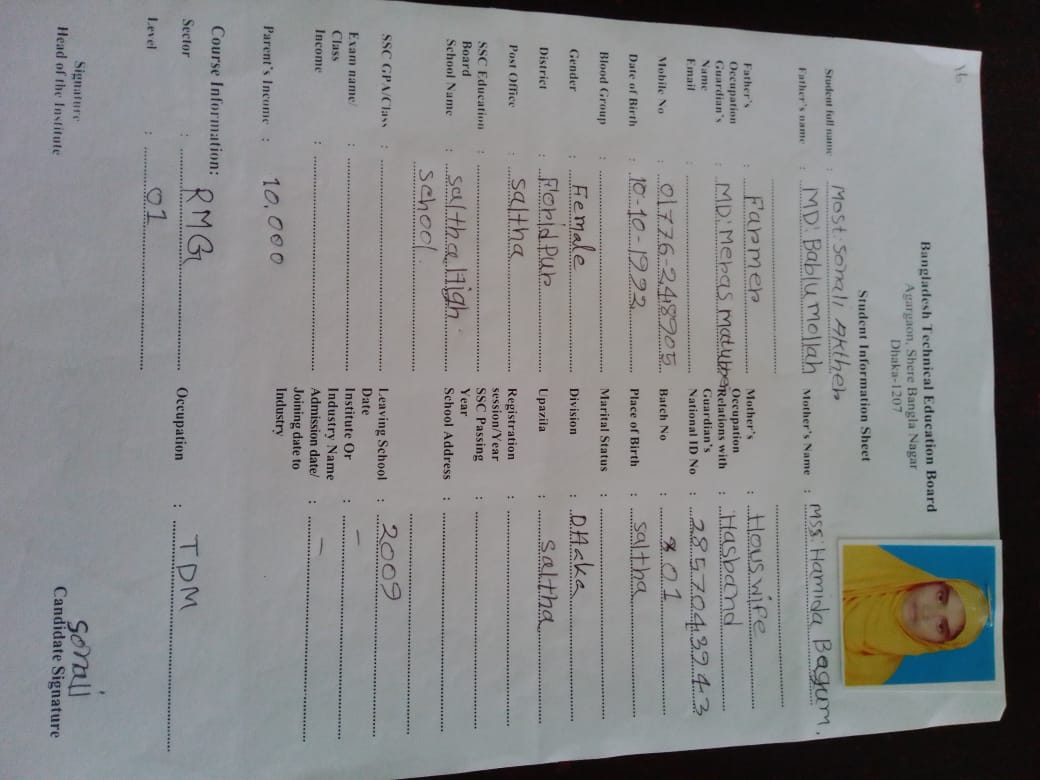 16
Bangladesh Technical Education Board
Agargaon, Shere Bangla Nagar
Dhaka-1207
Student Information Sheet
Student full name : Most. Sonali Akther
Father's name : MD: Bablu Mollah Mother's Name : Mss: Hamida Bagum,
Father's Occupation : Farmer Mother's Occupation : Houswife
Guardian's Name : MD: Meras Matubber Relations with Guardian's : Hasband
Email : National ID No : 2857043943
Mobile No : 01776-248905 Batch No : 801
Date of Birth : 10-10-1992 Place of Birth : Saltha
Blood Group : Marital Status :
Gender : Female Division : DHaka
District : Foridpur Upazila : Saltha
Post Office : Saltha Registration session/Year :
SSC Education Board : SSC Passing Year :
School Name : Saltha High School. School Address :
SSC GPA/Class : Leaving School Date : 2009
Exam name/ Class : Institute Or Industry Name : –
Income : Admission date/ Joining date to Industry : –
Parent's Income : 10,000
Course Information:
Sector : RMG Occupation : TDM
Level : 01
Sonali
Signature Candidate Signature
Head of the Institute